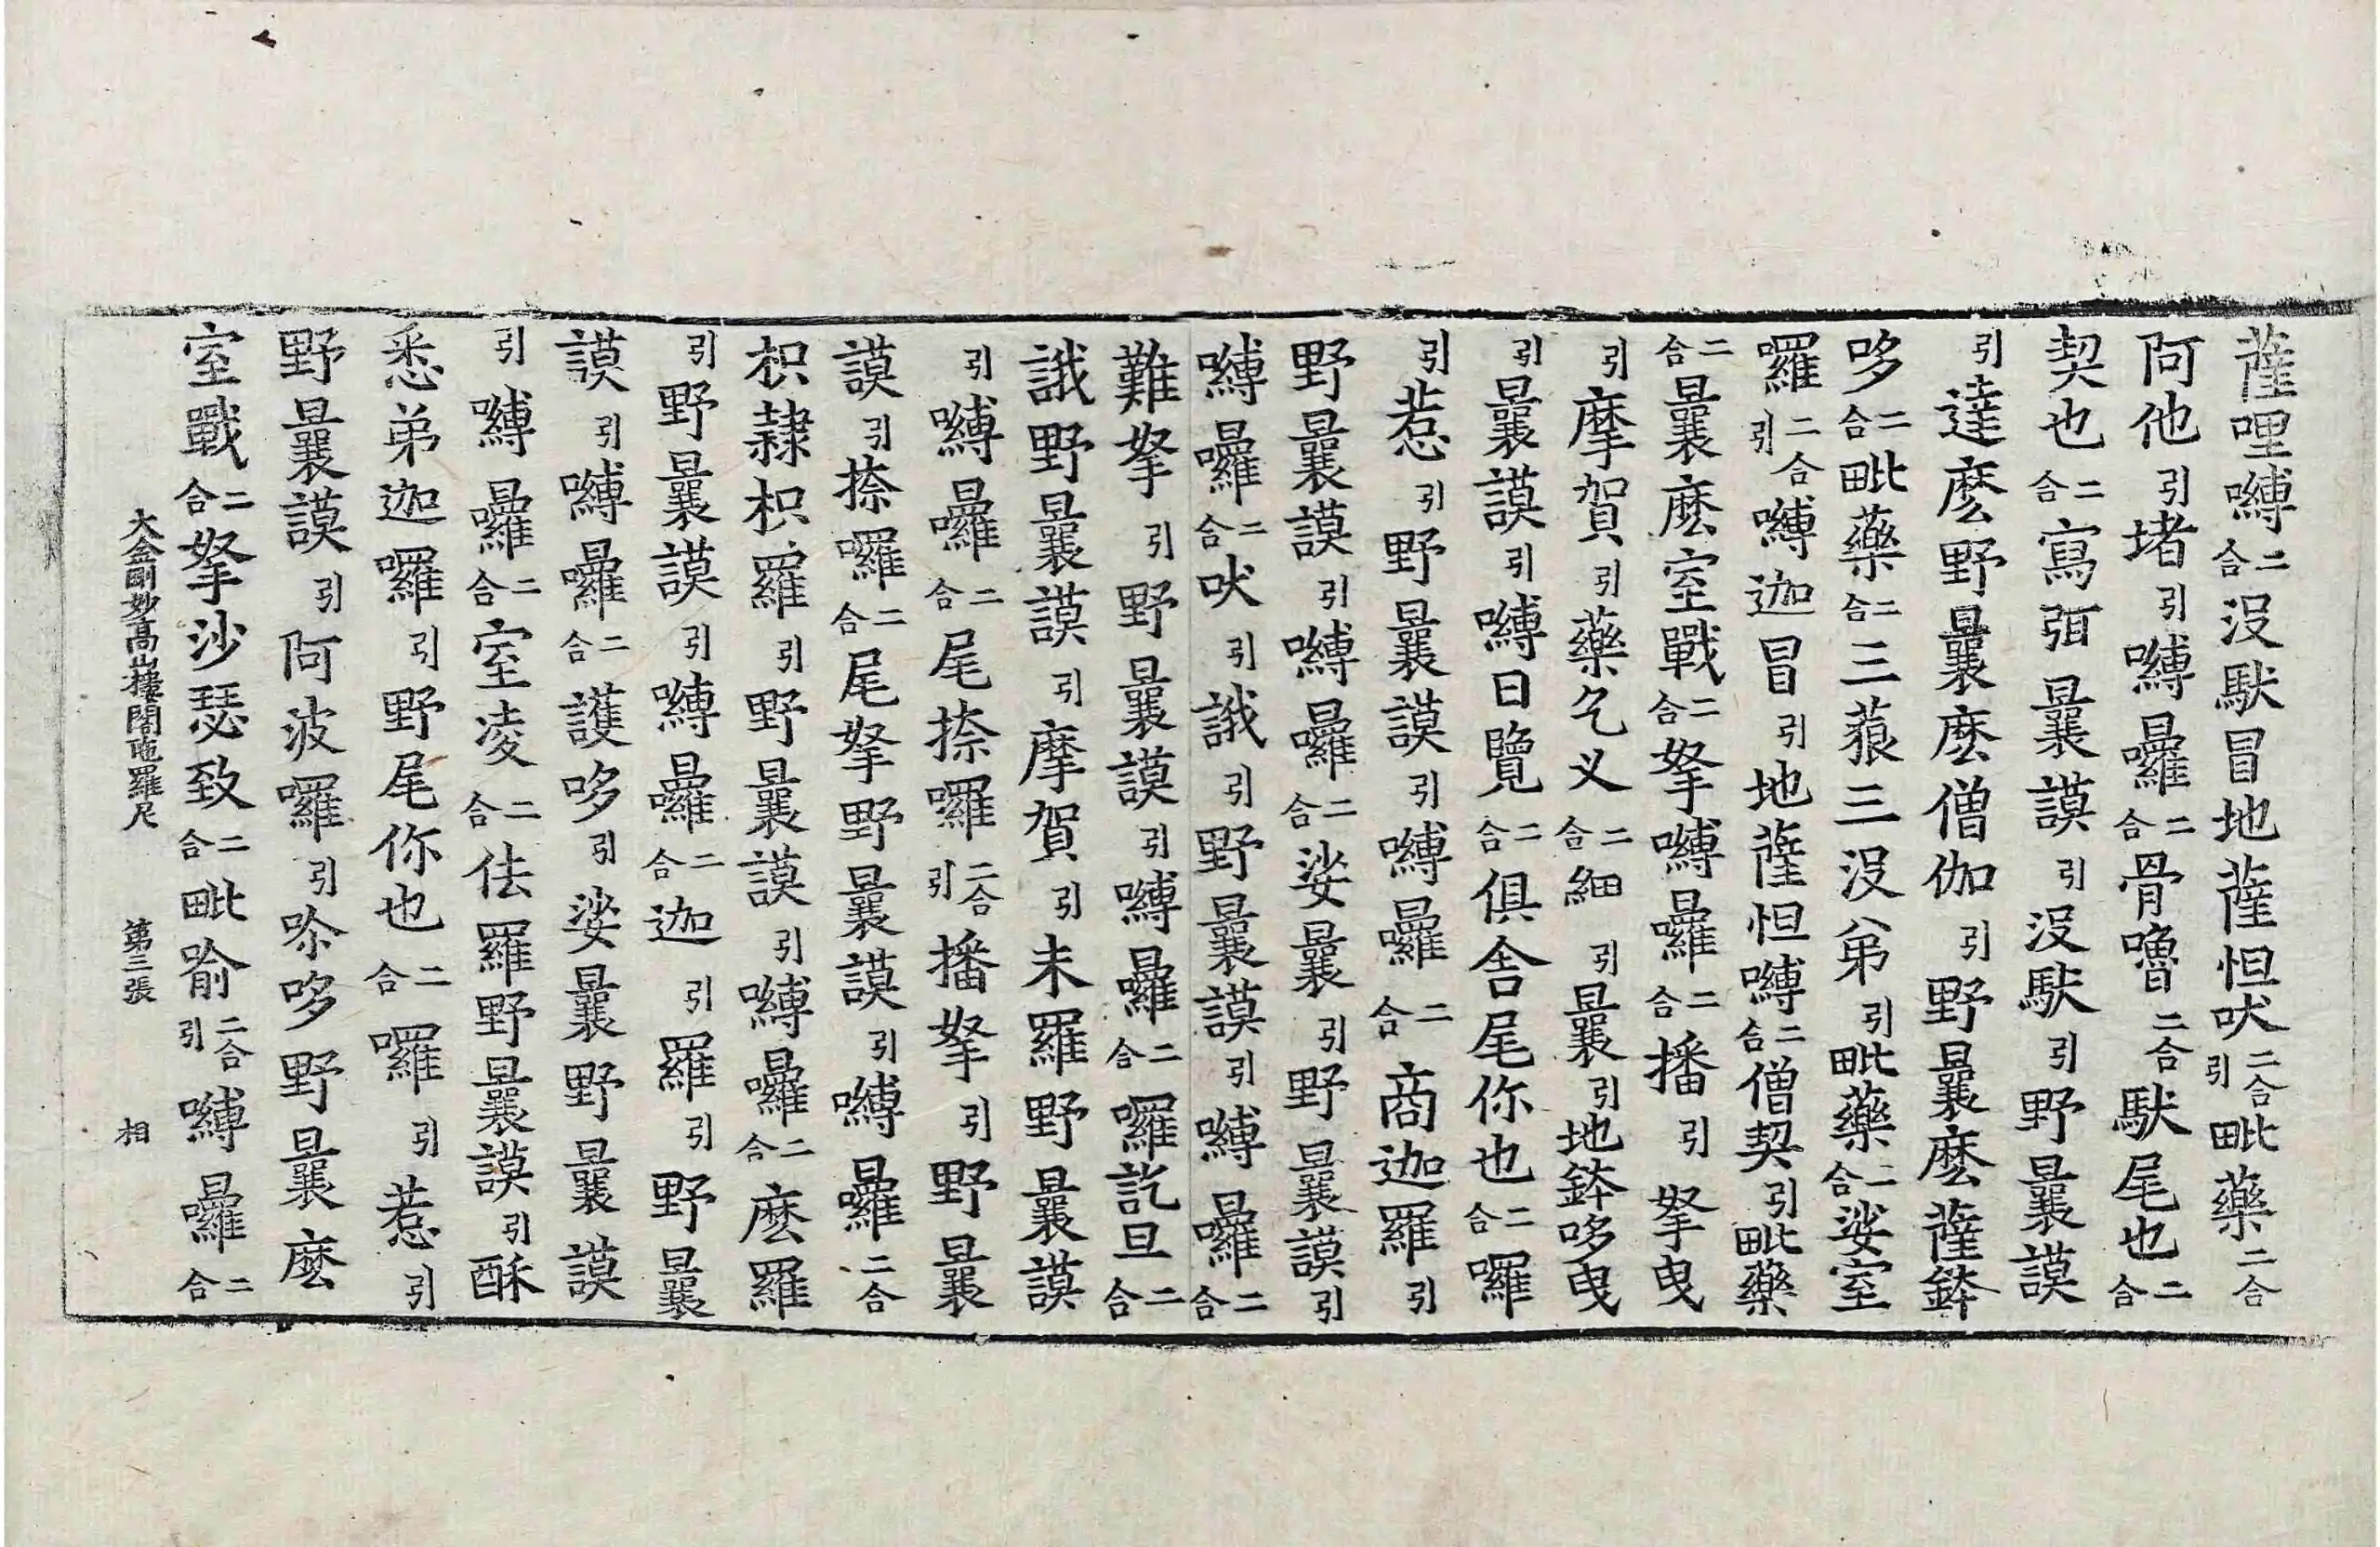 薩哩嚩二合沒馱冒地薩怛吠二合引毗藥二合
阿他引堵引嚩日囉二合骨嚕二合馱尾也二合
契也二合寫弭曩謨引沒馱引野曩謨
引達麽野曩麽僧伽引野曩麽薩鉢
哆二合毗藥二合三藐三沒弟引毗藥二合娑室
囉二合引嚩迦冒引地薩怛嚩二合僧契引毗藥
二合曩麽室戰二合拏嚩日囉二合播引拏曳
引摩賀引藥乞义二合細引曩引地鉢哆曳
引曩謨引嚩日覽二合俱舍尾你也二合囉
引惹引野曩謨引嚩日囉二合商迦羅引
野曩謨引嚩日囉二合娑曩引野曩謨引
嚩日囉二合吠引誐引野曩謨引嚩日囉二合
難拏引野曩謨引嚩日囉二合囉訖旦二合
誐野曩謨引摩賀引未羅野曩謨
引嚩日囉二合尾捺囉二合引播拏引野曩
謨引捺囉二合尾拏野曩謨引嚩日囉二合
枳隸枳羅引野曩謨引嚩日囉二合麽羅
引野曩謨引嚩日囉二合迦引羅引野曩
謨引嚩日囉二合護哆引娑曩野曩謨
引嚩日囉二合室凌二合佉羅野曩謨引酥
悉弟迦囉引野尾你也二合囉引惹引
野曩謨引阿波囉引哆野曩麽
室戰二合拏沙瑟致二合毗喻二合引嚩日囉二合
大金剛妙高山樓閣陁羅尼 第三張 相